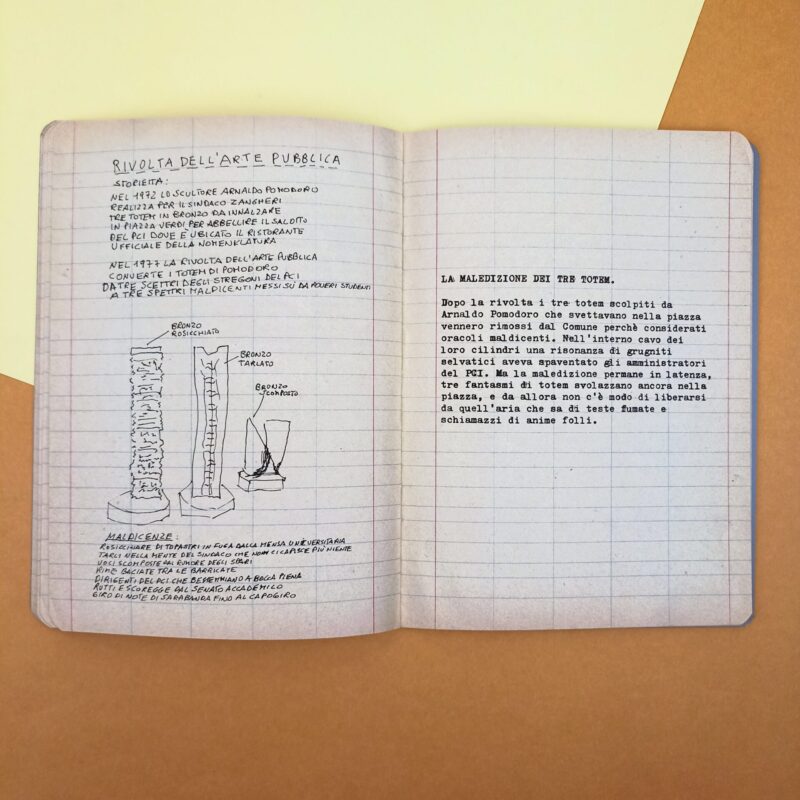 RIVOLTA DELL'ARTE PUBBLICA
STORIETTA:
NEL 1972 LO SCULTORE ARNALDO POMODORO
REALIZZA PER IL SINDACO ZANGHERI
TRE TOTEM IN BRONZO DA INNALZARE
IN PIAZZA VERDI PER ABBELLIRE IL SALOTTO
DEL PCI DOVE È UBICATO IL RISTORANTE
UFFICIALE DELLA NOMENKLATURA
NEL 1977 LA RIVOLTA DELL'ARTE PUBBLICA
CONVERTE I TOTEM DI POMODORO
DA TRE SCETTRI DEGLI STREGONI DEL PCI
A TRE SPETTRI MALDICENTI MESSI SU DA POVERI STUDENTI
BRONZO
ROSICCHIATO
BRONZO
TARLATO
BRONZO
SCOMPOSTO
MALDICENZE:
ROSICCHIARE DI TOPASTRI IN FUGA DALLA MENSA UNIVERSITARIA
TARLI NELLA MENTE DEL SINDACO CHE NON CI CAPISCE PIÙ NIENTE
VOCI SCOMPOSTE DAL RUMORE DEGLI SPARI
RIME BACIATE TRA LE BARRICATE
DIRIGENTI DEL PCI CHE BESTEMMIANO A BOCCA PIENA
RUTTI E SCOREGGE DAL SENATO ACCADEMICO
GIRO DI NOTE DI SARABANDA FINO AL CAPOGIRO
LA MALEDIZIONE DEI TRE TOTEM.
Dopo la rivolta i tre totem scolpiti da
Arnaldo Pomodoro che svettavano nella piazza
vennero rimossi dal Comune perchè considerati
oracoli maldicenti. Nell'interno cavo dei
loro cilindri una risonanza di grugniti
selvatici aveva spaventato gli amministratori
del PCI. Ma la maledizione permane in latenza,
tre fantasmi di totem svolazzano ancora nella
piazza, e da allora non c'è modo di liberarsi
da quell'aria che sa di teste fumate e
schiamazzi di anime folli.